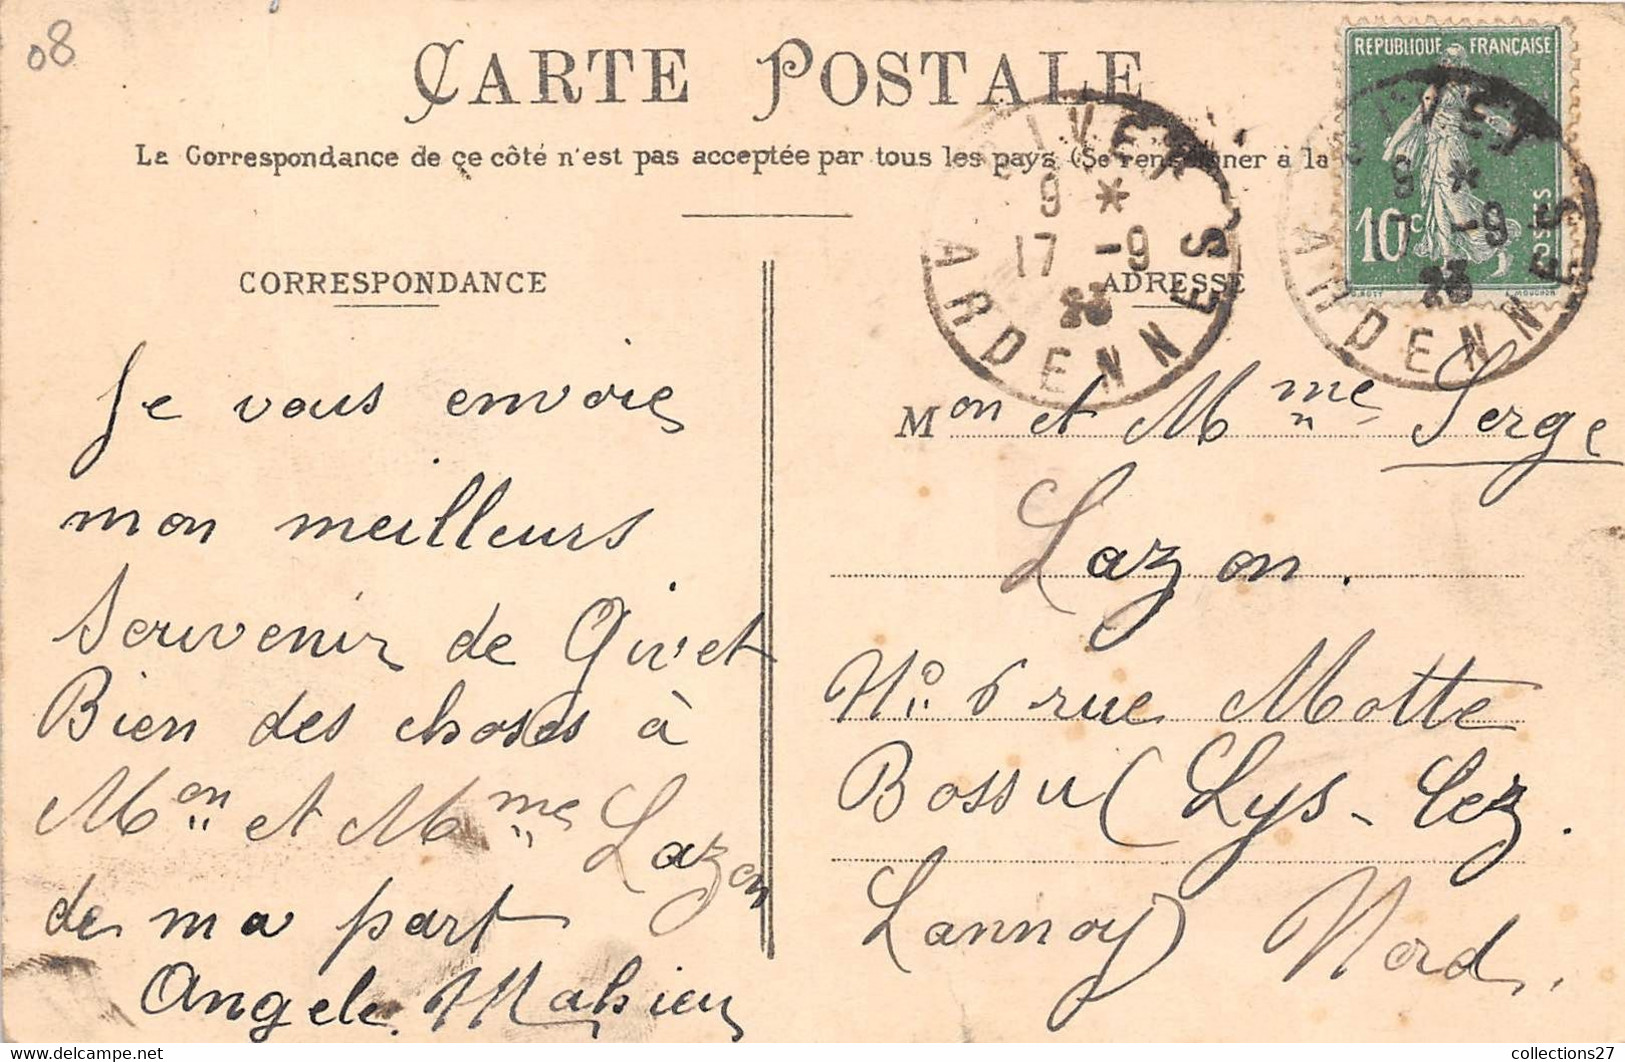 08
CARTE POSTALE
La Correspondance de ce côté n'est pas acceptée par tous les pays (Se renseigner à la
REPUBLIQUE FRANÇAISE
10c
POSTES
O. ROTY
L. MOUCHON
GIVET
9 *
17 -9
23
ARDENNES
GIVET
9 *
17 -9
23
ARDENNES
CORRESPONDANCE
Je vous envoie
mon meilleurs
Servenir de Givet
Bien des choses à
Mon et Mme Lazon
de ma part
Angele. Mahieu
ADRESSE
Mon et Mme Serge
Lazon.
No 6 rue Motte
Bossu (Lys-lez.
Lannoy) Nord.
collections27